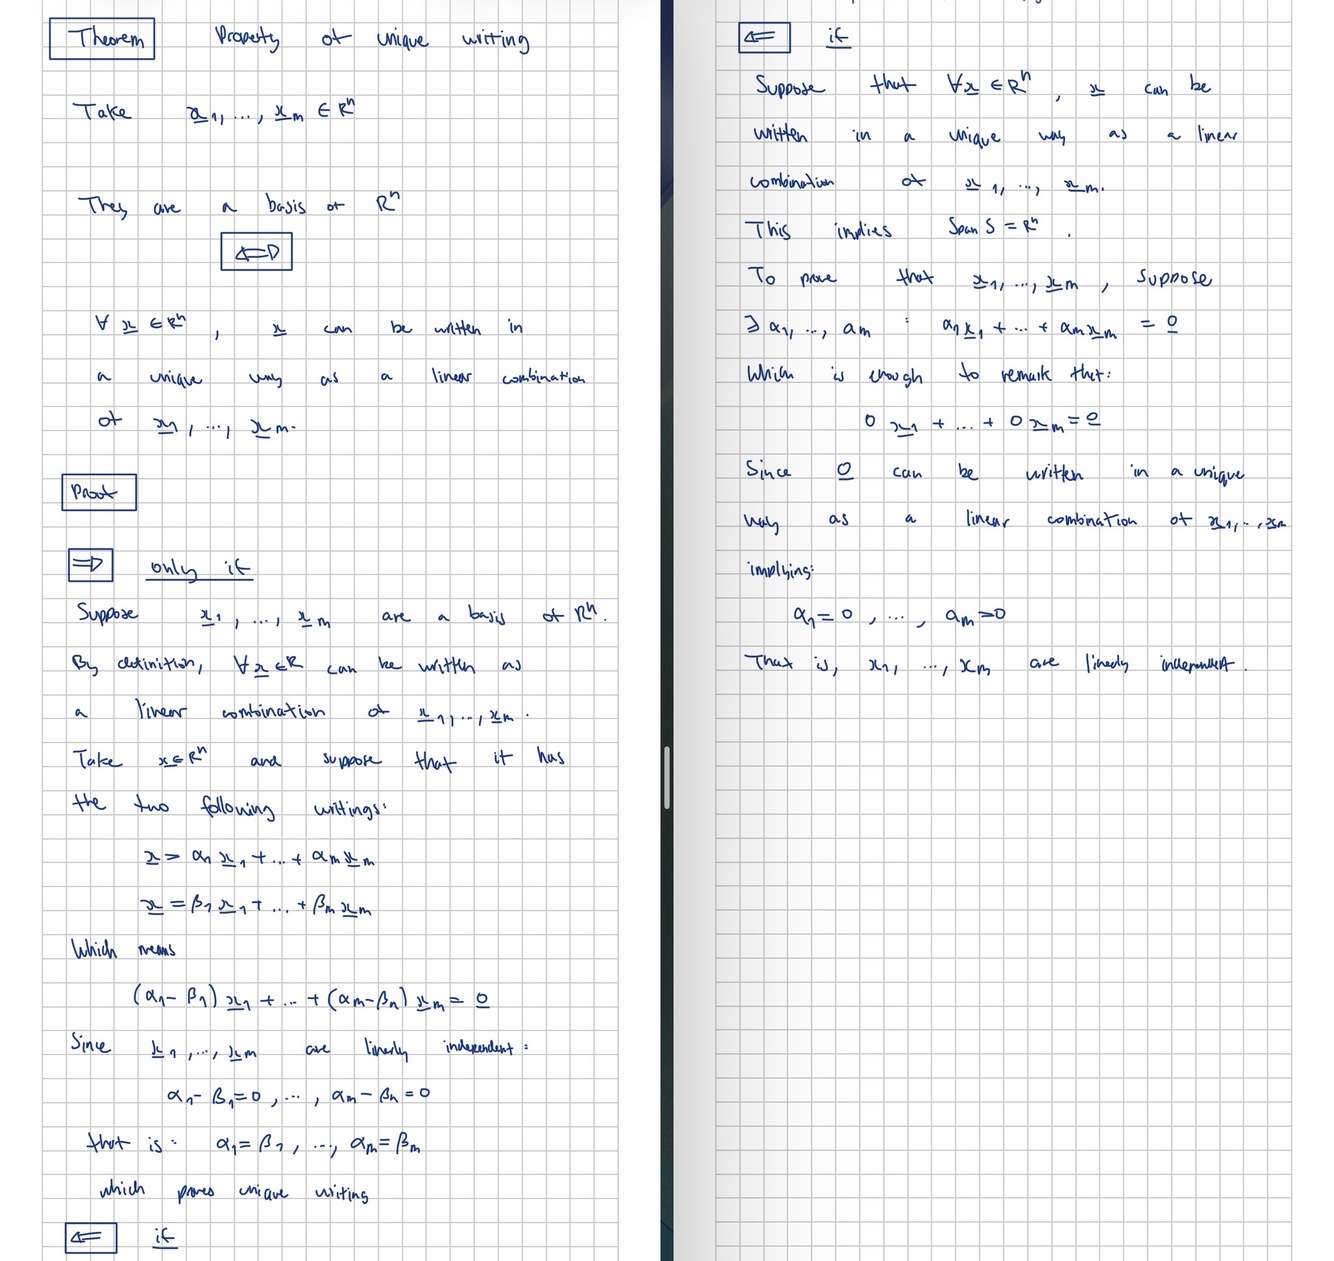 Theorem Property of unique writing
Take x₁, ..., xₘ ∈ ℝⁿ
They are a basis of ℝⁿ
⇐⇒
∀ x ∈ ℝⁿ, x can be written in
a unique way as a linear combination
of x₁, ..., xₘ.
Proof
⇒ only if
Suppose x₁, ..., xₘ are a basis of ℝⁿ.
By definition, ∀x ∈ ℝ can be written as
a linear combination of x₁, ..., xₘ.
Take x ∈ ℝⁿ and suppose that it has
the two following writings:
x = α₁x₁ + ... + αₘxₘ
x = β₁x₁ + ... + βₘxₘ
Which means
(α₁ - β₁)x₁ + ... + (αₘ - βₙ)xₘ = 0
Since x₁, ..., xₘ are linerly independent:
α₁ - β₁ = 0, ..., αₘ - βₙ = 0
that is: α₁ = β₁, ..., αₘ = βₘ
which proves unique writing
⇐ if
⇐ if
Suppose that ∀x ∈ ℝⁿ, x can be
written in a unique way as a linear
combination of x₁, ..., xₘ.
This implies Span S = ℝⁿ.
To prove that x₁, ..., xₘ, suppose
∃ α₁, ..., αₘ : α₁x₁ + ... + αₘxₘ = 0
Which is enough to remark that:
0 x₁ + ... + 0 xₘ = 0
Since 0 can be written in a unique
way as a linear combination of x₁, ..., xₘ
implying:
α₁ = 0, ..., αₘ = 0
That is, x₁, ..., xₘ are linerly independent.